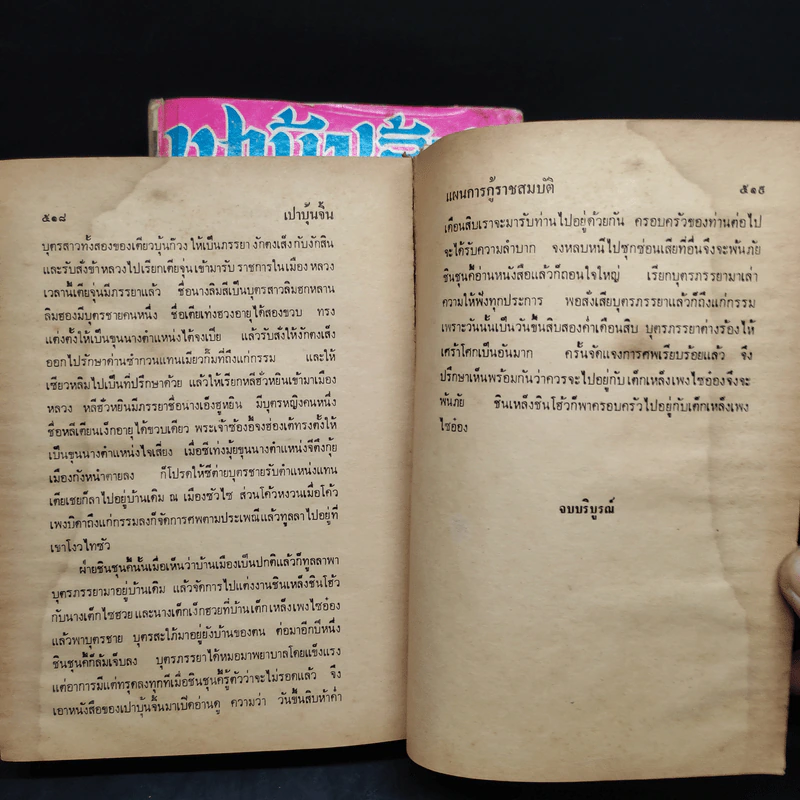 เปาบุ้นจิ้น
๕๑๘
เปาบุ้นจิ้น
บุตรสาวทั้งสองของเตียวบุ้นก๊วง ให้เป็นภรรยา งักตงเส็งกับงักสิน
และรับสั่งข้าหลวงไปเรียกเตียจุ่นเข้ามารับ ราชการในเมืองหลวง
เวลานี้เตียจุ่นมีภรรยาแล้ว ชื่อนางลิมสีเป็นบุตรสาวลิมฮกหลาน
ลิมฮองมีบุตรชายคนหนึ่ง ชื่อเตียเท่งฮวงอายุได้สองขวบ ทรง
แต่งตั้งให้เป็นขุนนางตำแหน่งได้จงเบีย แล้วรับสั่งให้งักตงเส็ง
ออกไปรักษาด่านชำกวนแทนเมียวกิ้มที่ถึงแก่กรรม และให้
เซียวหลิมไปเป็นที่ปรึกษาด้วย แล้วให้เรียกหลีฮั่วหยินเข้ามาเมือง
หลวง หลีฮั่วหยินมีภรรยาชื่อนางเอ็งฮูหยิน มีบุตรหญิงคนหนึ่ง
ชื่อหลีเตียนเง็กอายุได้ขวบเดียว พระเจ้าซ้องยี้จงฮ่องเต้ทรงตั้งให้
เป็นขุนนางตำแหน่งใจเสี่ยง เมื่อซีเท่งมุ้ยขุนนางตำแหน่งจีตึงกุ้ย
เมืองกังหนำตายลง ก็โปรดให้ซีต่ายบุตรชายรับตำแหน่งแทน
เตียเชยก็ลาไปอยู่บ้านเดิม ณ เมืองซัวไซ ส่วนโค้วหงวนเมื่อโค้ว
เพงบิดาถึงแก่กรรมลงก็จัดการศพตามประเพณีแล้วทูลลาไปอยู่ที่
เขาโงวไทซัว
ฝ่ายชินชุนคี้นั้นเมื่อเห็นว่าบ้านเมืองเป็นปกติแล้วก็ทูลลาพา
บุตรภรรยามาอยู่บ้านเดิม แล้วจัดการไปแต่งงานชินเหล็งชินโฮ้ว
กับนางเต็กไซฮวยและนางเต็กเง็กฮวยที่บ้านเต็กเหล็งเพงไซอ๋อง
แล้วพาบุตรชาย บุตรสะใภ้มาอยู่ยังบ้านของตน ต่อมาอีกปีหนึ่ง
ชินชุนคี้ก็ล้มเจ็บลง บุตรภรรยาได้หมอมาพยาบาลโดยแข็งแรง
แต่อาการมีแต่ทรุดลงทุกทีเมื่อชินชุนคี้รู้ตัวว่าจะไม่รอดแล้ว จึง
เอาหนังสือของเปาบุ้นจิ้นมาเปิดอ่านดู ความว่า วันขึ้นสิบห้าค่ำ
แผนการกู้ราชสมบัติ
๕๑๙
เดือนสิบเราจะมารับท่านไปอยู่ด้วยกัน ครอบครัวของท่านต่อไป
จะได้รับความลำบาก จงหลบหนีไปซุกซ่อนเสียที่อื่นจึงจะพ้นภัย
ชินชุนคี้อ่านหนังสือแล้วก็ถอนใจใหญ่ เรียกบุตรภรรยามาเล่า
ความให้ฟังทุกประการ พอสั่งเสียบุตรภรรยาแล้วก็ถึงแก่กรรม
เพราะวันนั้นเป็นวันขึ้นสิบสองค่ำเดือนสิบ บุตรภรรยาต่างร้องไห้
เศร้าโศกเป็นอันมาก ครั้นจัดแจงการศพเรียบร้อยแล้ว จึง
ปรึกษาเห็นพร้อมกันว่าควรจะไปอยู่กับเต็กเหล็งเพงไซอ๋องจึงจะ
พ้นภัย ชินเหล็งชินโฮ้วก็พาครอบครัวไปอยู่กับเต็กเหล็งเพง
ไซอ๋อง
จบบริบูรณ์